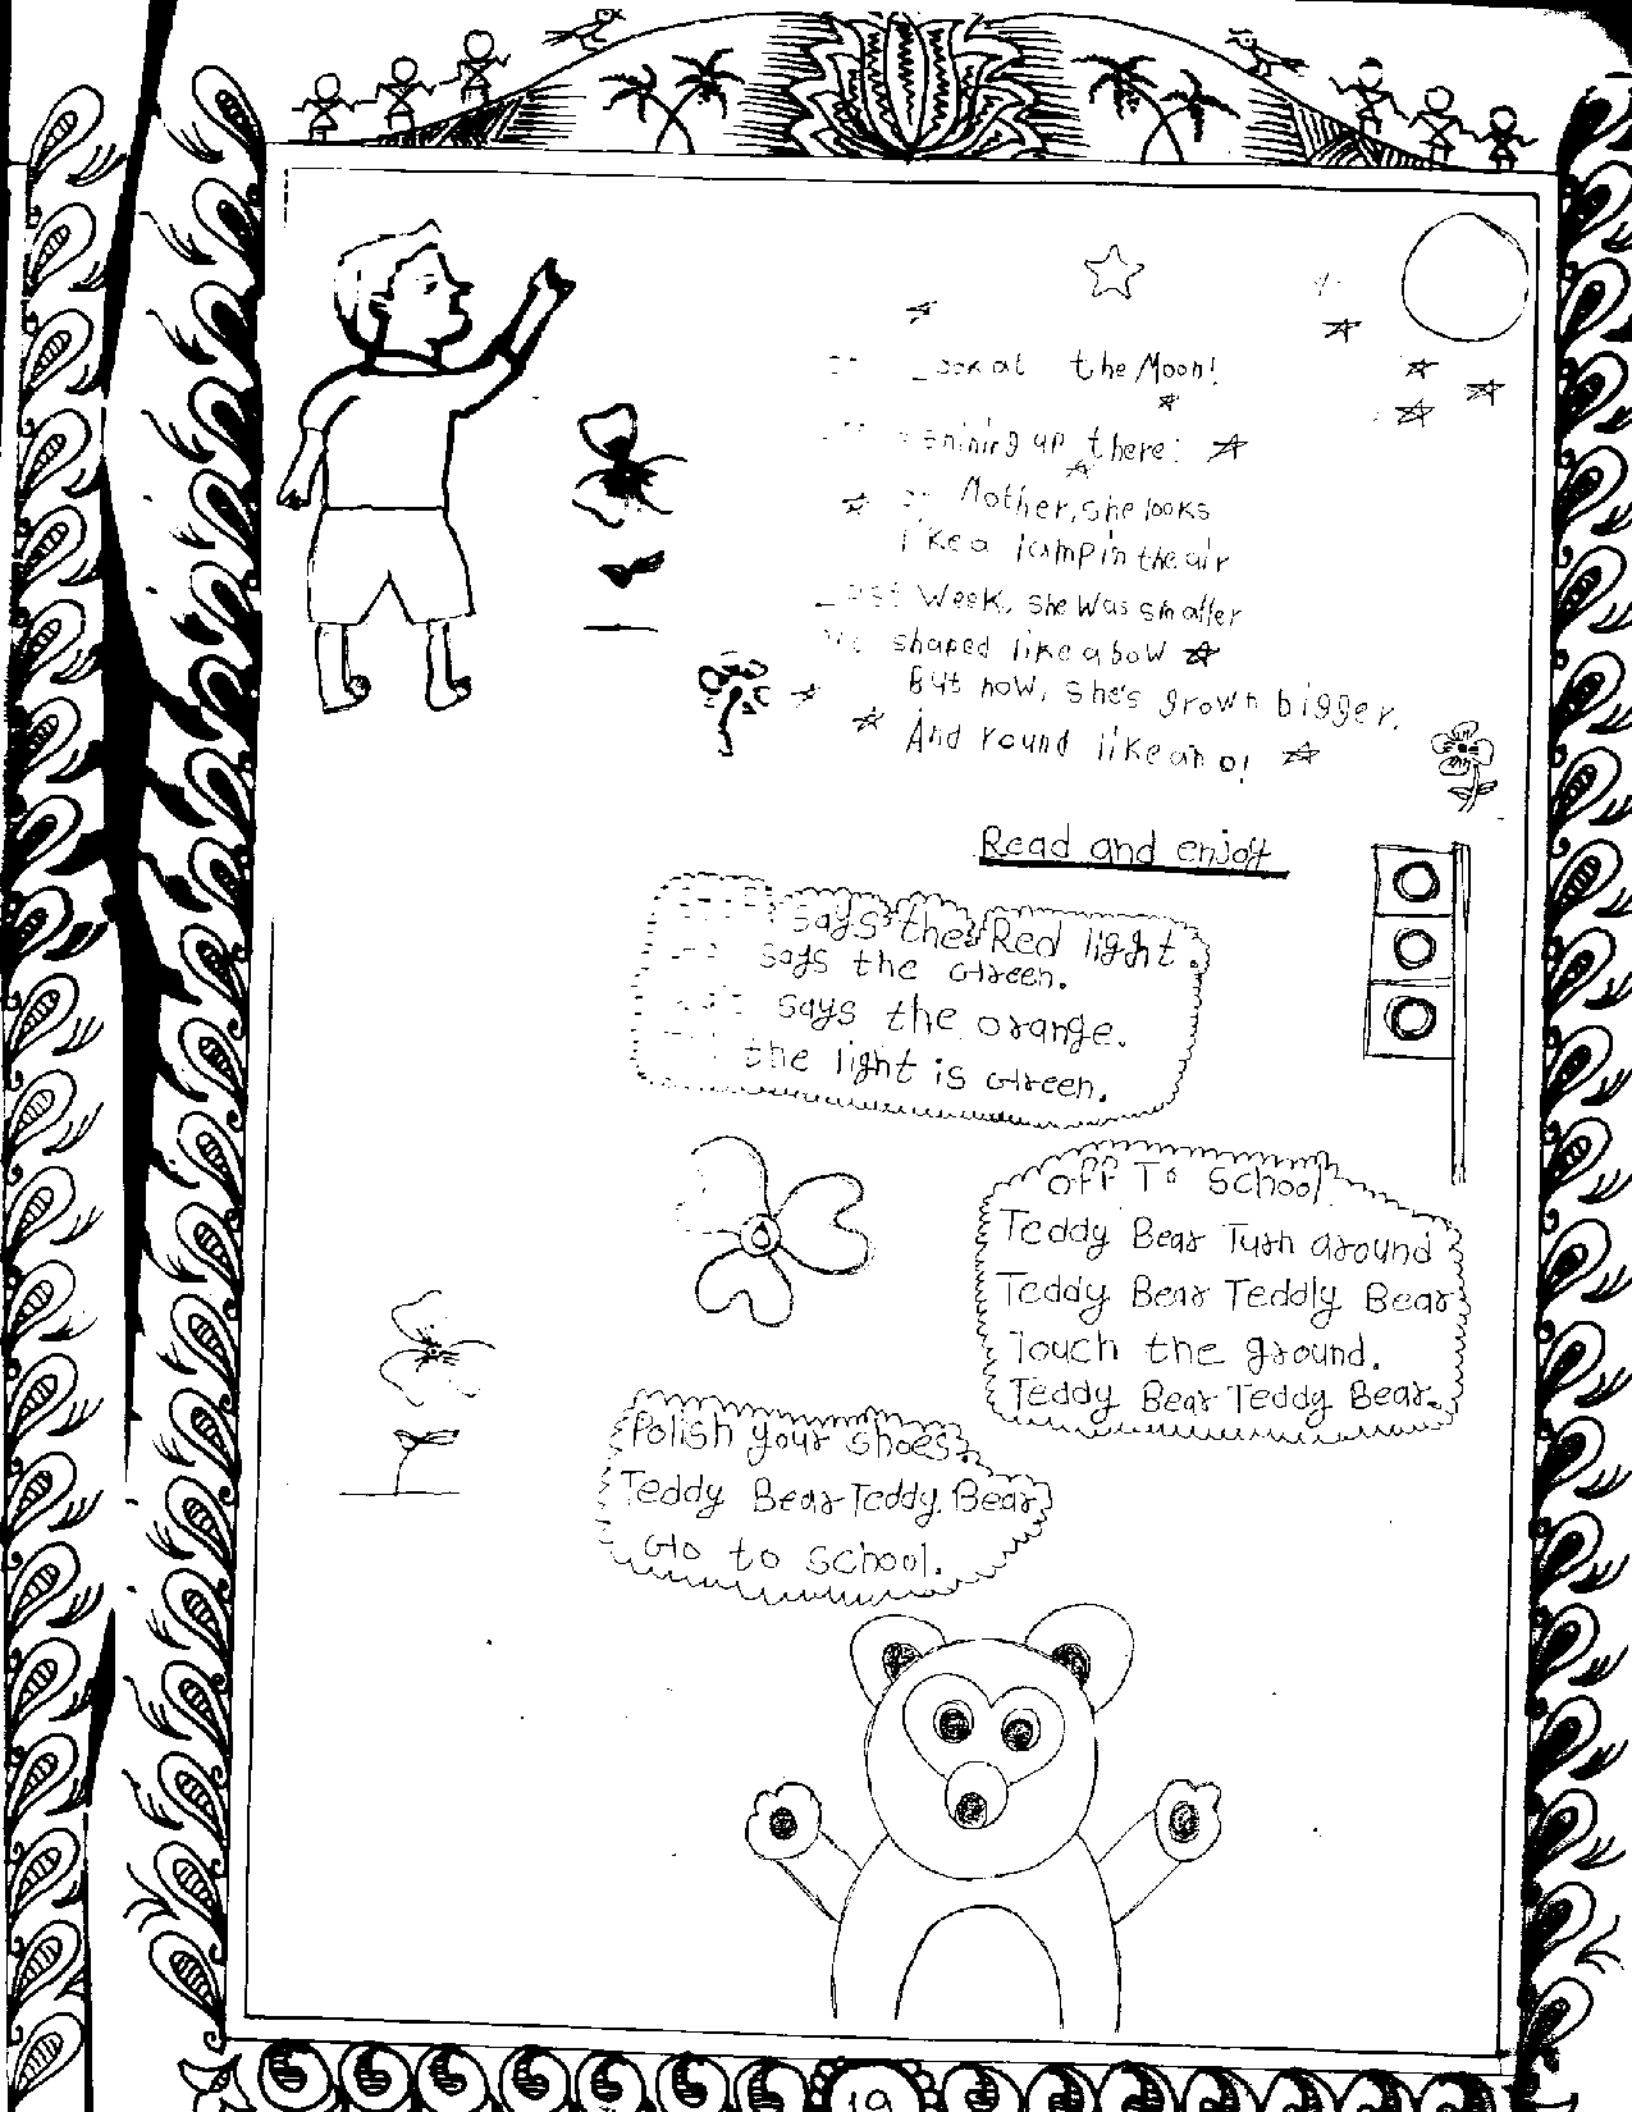 at the Moon!
shining up there:
Mother, she looks
like a lamp in the air
Week, she was smaller
shaped like a bow
But now, she's grown bigger,
And round like an o!
Read and enjoy
says the Red light.
says the Green.
says the orange.
the light is Green.
off To School
Teddy Bear Turn around
Teddy Bear Teddy Bear
Touch the ground.
Teddy Bear Teddy Bear.
Polish your shoes.
Teddy Bear Teddy Bear
Go to School.
19